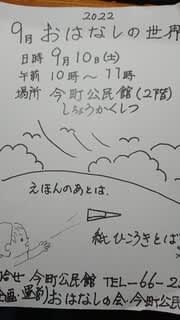 2022
9月 おはなしの世界
日時 9月10日(土)
午前 10時～11時
場所 今町公民館(2階)
しちょうかくしつ
えほんのあとは、
紙ひこうきとば
合せ 今町公民館 TEL-66-2
おはなしの会・今町公民